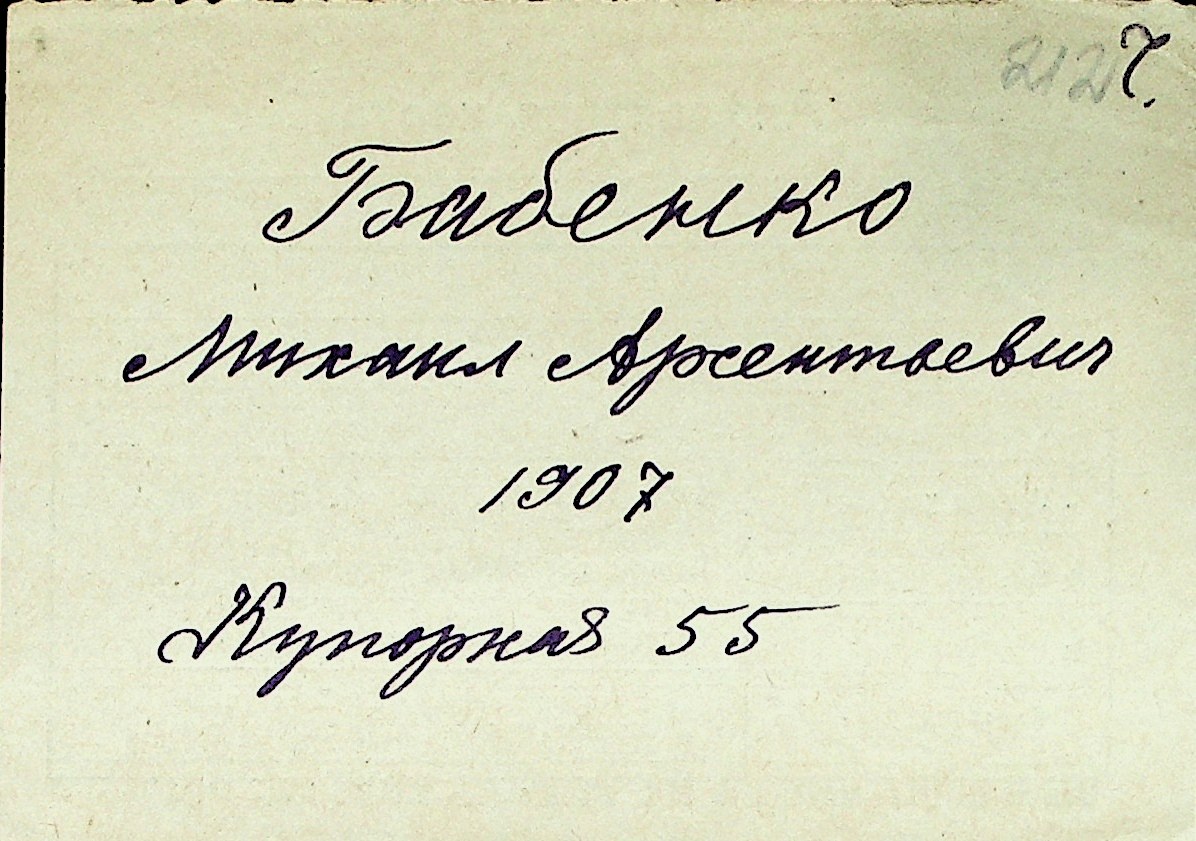 212 7.
Бабенко
Михаил Арсентьевич
1907
Купорная 55